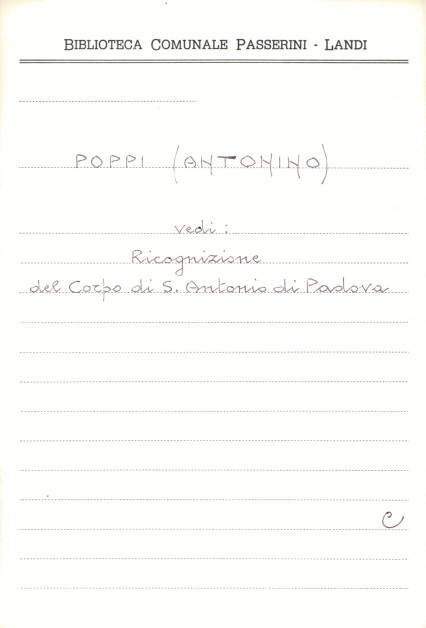 BIBLIOTECA COMUNALE PASSERINI - LANDI
POPPI (ANTONINO)
vedi :
Ricognizione
del Corpo di S. Antonio di Padova
C